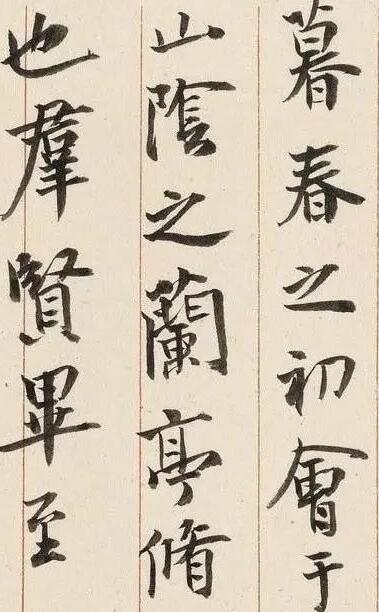 暮春之初會于
山陰之蘭亭脩
也羣賢畢至